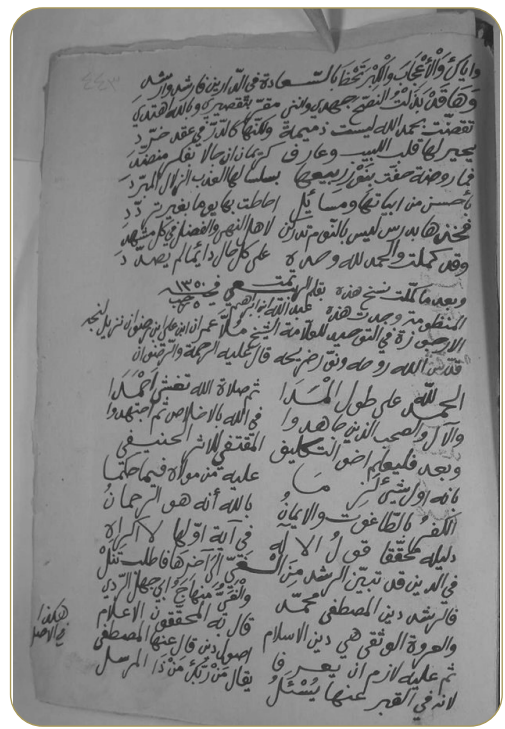 واياك والأعجاب والكبر تحظ بالسعادة في الدارين فارشد وارشد
وها قد بذلت النصح جهدي وانني مقر بتقصيري وبالله اهتدي
تقضت بحمد الله ليست دميمة ولكنها كالدر في عقد خرد
يحير لها قلب اللبيب وعارف كريمان ان جالا بفكر منضد
فما روضة حفت بنور ربيعها بسلسالها العذب الزلال المبرد
بأحسن من ابياتها ومسائل احاطت بها يوما بغير تردد
فخذها بدرس ليس بالنوم تدركن لاهل النهى والفضل في كل مشهد
وقد كملت والحمد لله وحده على كل حال دايما لم يصدد
وبعد ما كملت نسخ هذه بقلم
المنظومة وجدت هذه عبد الله ابراهيم في ١٣٥٠
الارجوزة في التوحيد للعلامة الشيخ ملا عمران ابن علي بن رضوان نزيل لنجه
قدس الله روحه ونور ضريحه قال عليه الرحمة والرضوان
الحمد لله على طول المدا ثم صلاة الله تغشى احمدا
والآل والصحب الذين جاهدوا في الله بالاخلاص ثم اجتهدوا
وبعد فليعلم اخو التكليف المقتفي للاثر الحنيفي
بانه اول شيء لزما عليه من مولاه فيما حكما
الكفر بالطاغوت والايمان بالله أنه هو الرحمان
دليله محققا قول الاله في آية اولها لا اكراه
في الدين قد تبين الرشد من الغي الى آخرها فاطلب تنل
فالرشد دين المصطفى محمد والغي منهاج ابي جهل الردي
والعروة الوثقى هي دين الاسلام قال به المحققون الاعلام
ثم عليه لازم ان يعرفا اصول دين قال عنها المصطفى
لانه في القبر عنها يسئل يقال من ربك من ذا المرسل
هكذا
في الاصل